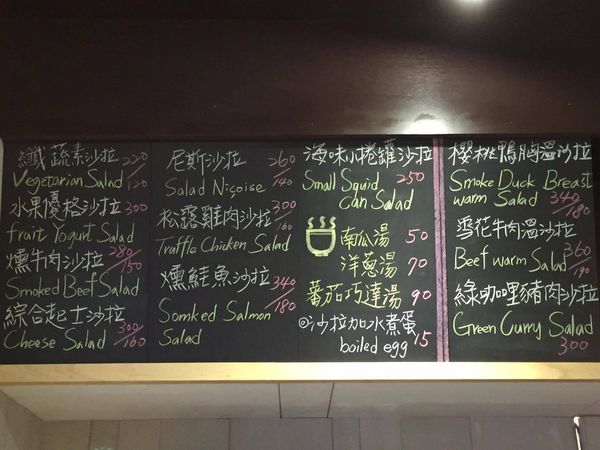 纖蔬素沙拉 220/120
Vegetarian Salad
水果優格沙拉 300
fruit Yogurt Salad
燻牛肉沙拉 280/150
Smoked Beef Salad
綜合起士沙拉 300/160
Cheese Salad
尼斯沙拉 260/140
Salad Niçoise
松露雞肉沙拉 300/160
Traffle Chicken Salad
燻鮭魚沙拉 340/180
Somked Salmon
Salad
海味小捲罐沙拉
Small Squid 250
can Salad
南瓜湯 50
洋蔥湯 70
蕃茄巧達湯 90
◎沙拉加水煮蛋 15
boiled egg
櫻桃鴨胸溫沙拉
Smoke Duck Breast
warm Salad 340/180
雪花牛肉溫沙拉
Beef warm Salad 360/190
綠咖哩豬肉沙拉
Green Curry Salad
300